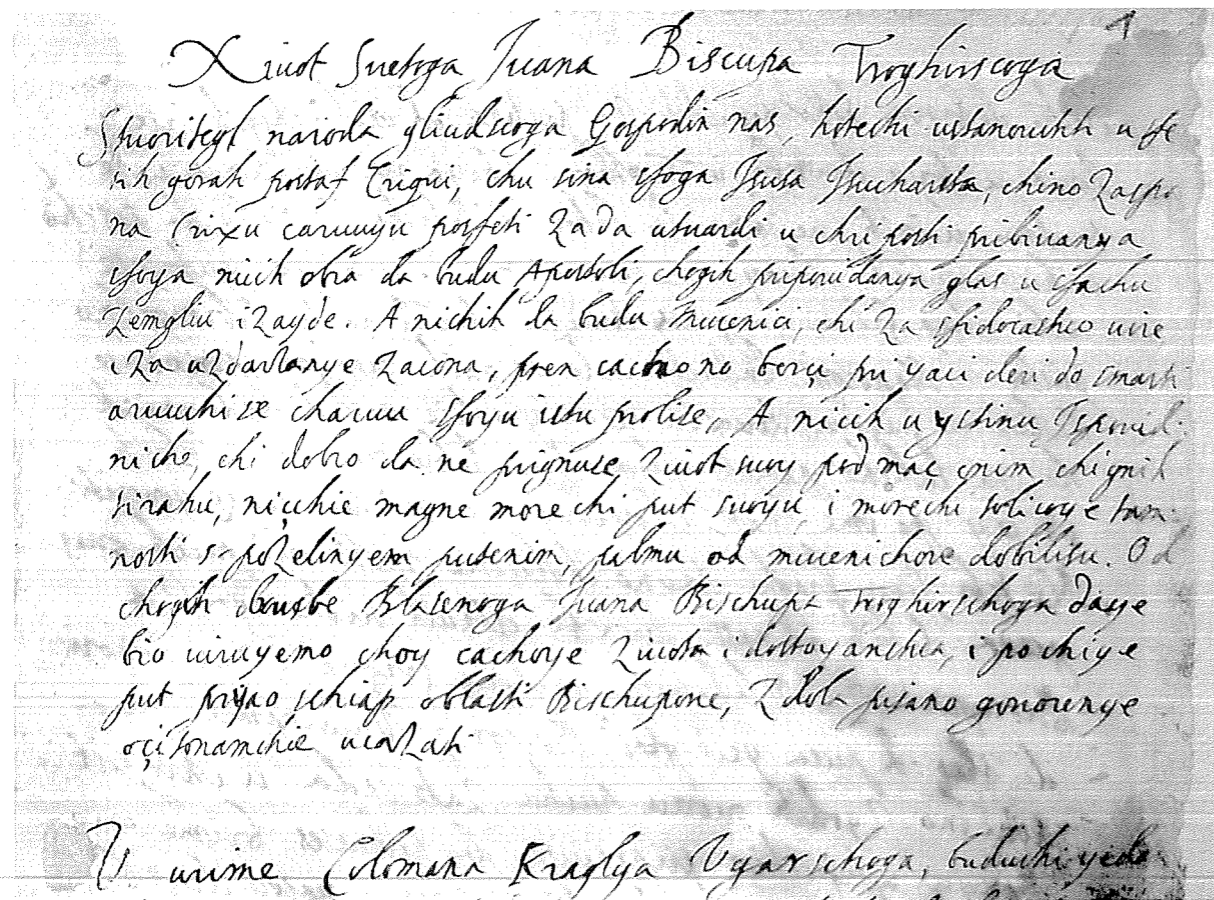 1
Xiuot Suetoga Iuana Biscupa Troghirscoga
Stuoritegl naroda gliudscoga Gospodin nas, hotechi ustanouithi u sfe
tih gorah postaf Crigui, chu sina sfoga Isusa Isucharsta, chino Zaspo
na Crixu caruuyu posfeti Zada utuardi u chriposti pribiuanya
sfoya nicih obra da budu Apostoli, chogih pripouidanya glas u sfachu
Zemgliu iZayde. A nichih da budu Mucenici, chi Za sfidocastuo uire
iZa uZdarxanye Zacona, pren cachono borçi pri yaci deri do smarti
aruuchise charuu sfoyu istu prolise, A nicih u ystinu Ispouid
niche, chi dobro da ne prignuse Ziuot suoy pod maç, onim chignih
strahu, niçchie magne morechi put suoyu i morechi tolicoye tam
nosti s poZelinyem pusenim, palmu od mucenichoue dobilisu. Od
chogih drusbe Blasenoga Iuana Bischupa Troghirschoga daye
bio uiruyemo choy cachoye Ziuota i dostoyanstua, i po chiye
put priyao schiap oblasti Bischupoue, Zdola pisano gouorenye
oçitonamchie ucaZati
U urime Colomana Kraglya Ugarschoga, buduchi yeda